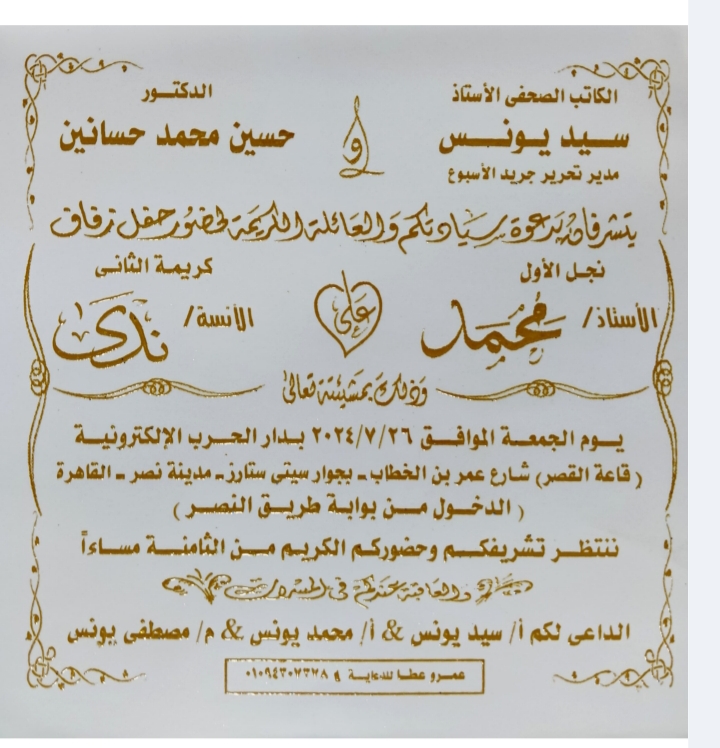 الكاتب الصحفى الأستاذ
سيد يونس
مدير تحرير جريد الأسبوع
و
الدكتور
حسين محمد حسانين
يتشرفان بدعوة سيادتكم والعائلة الكريمة لحضور حفل زفاف
نجل الأول
الأستاذ/ محمد
على
كريمة الثانى
الأنسة/ ندى
وذلك بمشيئته تعالى
يوم الجمعة الموافق ٢٠٢٤/٧/٢٦ بدار الحرب الإلكترونية
( قاعة القصر) شارع عمر بن الخطاب - بجوار سيتى ستارز - مدينة نصر - القاهرة
( الدخول من بوابة طريق النصر )
ننتظر تشريفكم وحضوركم الكريم من الثامنة مساءاً
والعاقبة عندكم فى المسرات
الداعى لكم أ/ سيد يونس & أ/ محمد يونس & م/ مصطفى يونس
عمرو عطا للدعاية ٠١٠٩٤٣٠٧٣٧٨